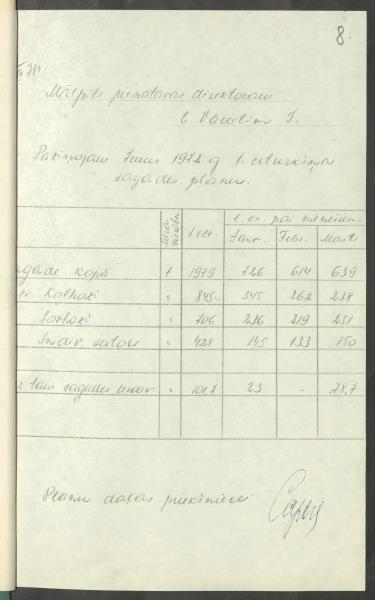 8.
Mālpils pienotavas direktoram
b. J.
Paziņojam Jums 1972. g. 1. ceturkšņa
sagādes planu.
Mēra
vienība
I cet.
t. sk. pa mēnešiem
Janv. Febr. Marts
kopā t 1979 726 614 639
Kolhozi " 845 345 262 238
Sovhozi " 706 236 219 251
Indiv. sektors " 428 145 133 150
sagādes " 101,7 23 - 78,7
Planu daļas priekšnieks: